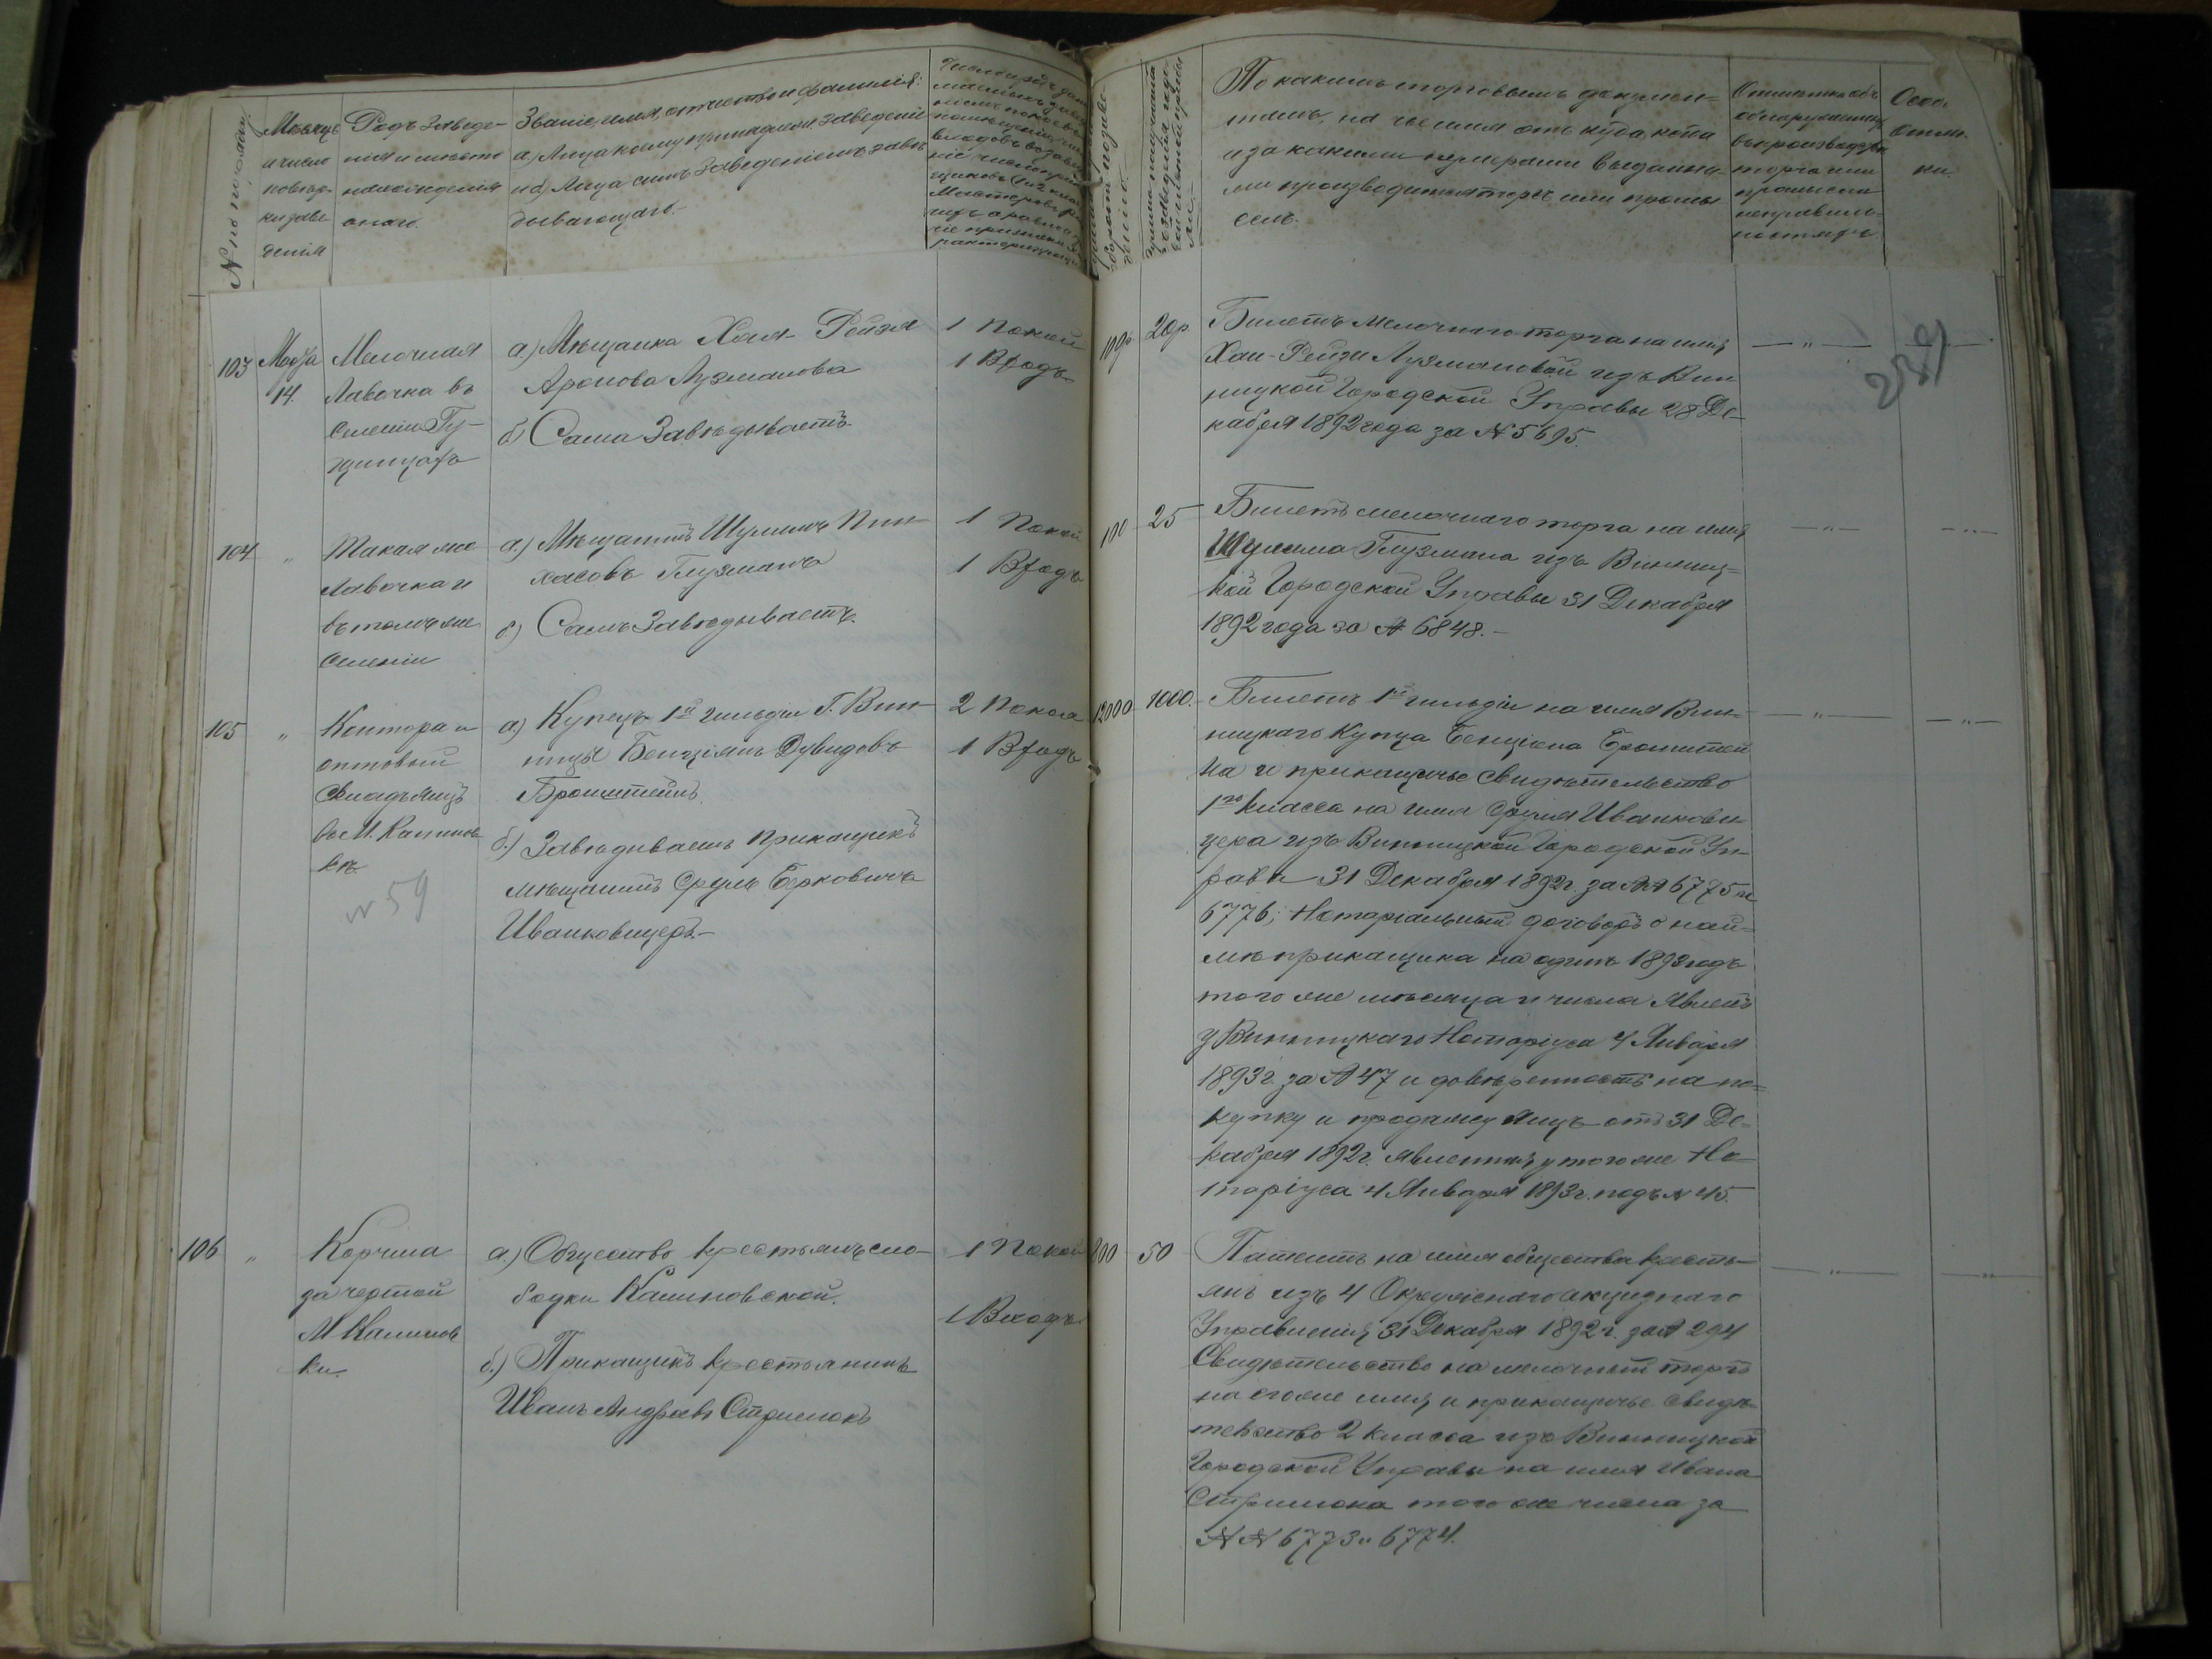 № по порядку
Мѣсяцъ
и число
повѣр-
ки заве-
денія
Родъ заведе-
нія и мѣсто
нахожденія
онаго.
Званіе, имя, отчество и фамилія:
а) Лица кому принадлеж. заведеніе
и б) Лица симъ заведеніемъ завѣ-
дывающаго.
По какимъ торговымъ докумен=
тамъ, на чье имя отъ куда, когда
и за какими нумерами выданны-
ми производится торгъ или промы
селъ.
Отмѣтка объ
обнаруженныхъ
въ производствѣ
торга или
промысла
неправиль-
ностяхъ.
Особ.
отмѣт-
ки.
103
Марта
14.
Мелочная
Лавочка въ
Селеніи Гу-
щинцахъ
а.) Мѣщанка Хая-Рейзя
Аронова Лузманова
б) Сама Завѣдываетъ.
1 Покой
1 Входъ
100р.
20р.
Билетъ мелочнаго торга на имя
Хаи-Рейзи Лузмановой изъ Вин
ницкой Городской Управы 28 Де-
кабря 1892 года за № 5695.
— „ —
239
104
„
Такая же
Лавочка и
въ томъ же
селеніи
а.) Мѣщанинъ Шулимъ Пин-
хасовъ Глузманъ
б.) Самъ Завѣдываетъ.
1 Покой
1 Входъ
100
25
Билетъ мелочнаго торга на имя
Шулима Глузмана изъ Винниц=
кой Городской Управы 31 Декабря
1892 года за № 6848.-
— „ —
— „ —
105
„
Контора и
оптовый
Складъ яицъ
въ М. Калинов
кѣ.
№ 59
а.) Купецъ 1й гильдіи Г. Вин-
ницы Бенціянъ Дувидовъ
Бронштейнъ.
б.) Завѣдываетъ прикащикъ
мѣщанинъ Сруль Берковичъ
Иванковицеръ.-
2 Покоя
1 Входъ
12000
1000.
Билетъ 1й гильдіи на имя Вин-
ницкаго Купца Бенціона Бронштей
на и прикащичье свидѣтельство
1го класса на имя Сруля Иванкови
цера изъ Винницкой Городской Уп-
равы 31 Декабря 1892г. за №№ 6775 и
6776; Нотаріальный договоръ о най-
мѣ прикащика на одинъ 1893 годъ
того же мѣсяца и числа явленъ
у Винницкаго Нотаріуса 4 Января
1893г. за № 47 и довѣренность на по=
купку и продажу яицъ отъ 31 Де-
кабря 1892г. явленная у того же Но-
таріуса 4 Января 1893г. подъ № 45.
— „ —
— „ —
106
„
Корчма
за чертой
М Калинов
ки.
а.) Общество крестьянъ сло-
бодки Калиновской.
б.) Прикащикъ крестьянинъ
Иванъ Андреевъ Стрилюкъ
1 Покой
1 Входъ
200
50
Патентъ на имя общества кресть-
янъ изъ 4 Окружнаго акцизнаго
Управленія 31 Декабря 1892г. за № 294
Свидѣтельство на мелочный торгъ
на его же имя и прикащичье свидѣ-
тельство 2 класса изъ Винницкой
Городской Управы на имя Ивана
Стрилюка того же числа за
№№ 6773 и 6774.
— „ —
— „ —